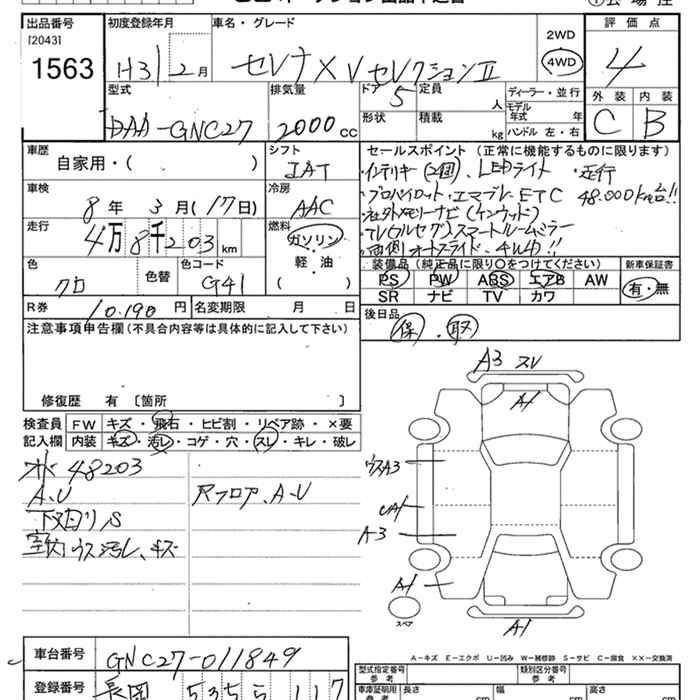 出品番号 初度登録年月 車名・グレード 2WD 評価点
[2043]
1563 H31 2月 セレナ XVセレクションⅡ 4WD 4
型式 排気量 ドア 5 定員 人 ディーラー・並行 外装 内装
DAA-GNC27 2000cc 形状 積載 kg モデル年式 年 ハンドル 左・右 C B
車歴 シフト セールスポイント (正常に機能するものに限ります)
自家用・( ) IAT ・インテリキー(2個)、LEDライト ・走行
車検 冷房 ・プロパイロット・エマブレ・ETC 48.000km台!!
8年 3月(17日) AAC ・社外メモリーナビ(ケンウッド)
走行 燃料 ・TV(フルセグ)スマートルームミラー
4万8千203km ガソリン ・両側オートスライド、4WD!!
軽・油 装備品 (純正品に限り〇をつけてください) 新車保証書
色 色替 色コード ( ) PS PW ABS エアB AW 有・無
クロ G41 SR ナビ TV カワ
R券 10.190円 名変期限 月 日 後日品
注意事項申告欄(不具合内容等は具体的に記入して下さい) 保・取
修復歴 有 [箇所 ]
検査員 FW キズ・飛石・ヒビ割・リペア跡・×要
記入欄 内装 キズ・汚レ・コゲ・穴・スレ・キレ・破レ
48203
A・U Rフロア、A・U
下廻りS
室内ウス汚レ、キズ
A3 スレ
A1
ウスA3
UA1
A-3
A1
スペア
A1
A-キズ E-エクボ U-凹み W-補修跡 S-サビ C-腐食 ××-交換済
車台番号 GNC27-011849 型式指定番号 参考 類別区分番号 参考
登録番号 長岡 535 117 車庫証明用 参考 長さ cm 幅 cm 高さ cm